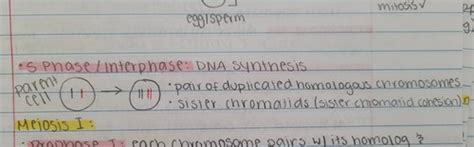 egg/sperm
mitosis ✓
• S Phase/Interphase: DNA synthesis
parent cell
• pair of duplicated homologous chromosomes
• sister chromatids (sister chromatid cohesion)
Meiosis I:
• Prophase I: each chromosome pairs w/ its homolog &